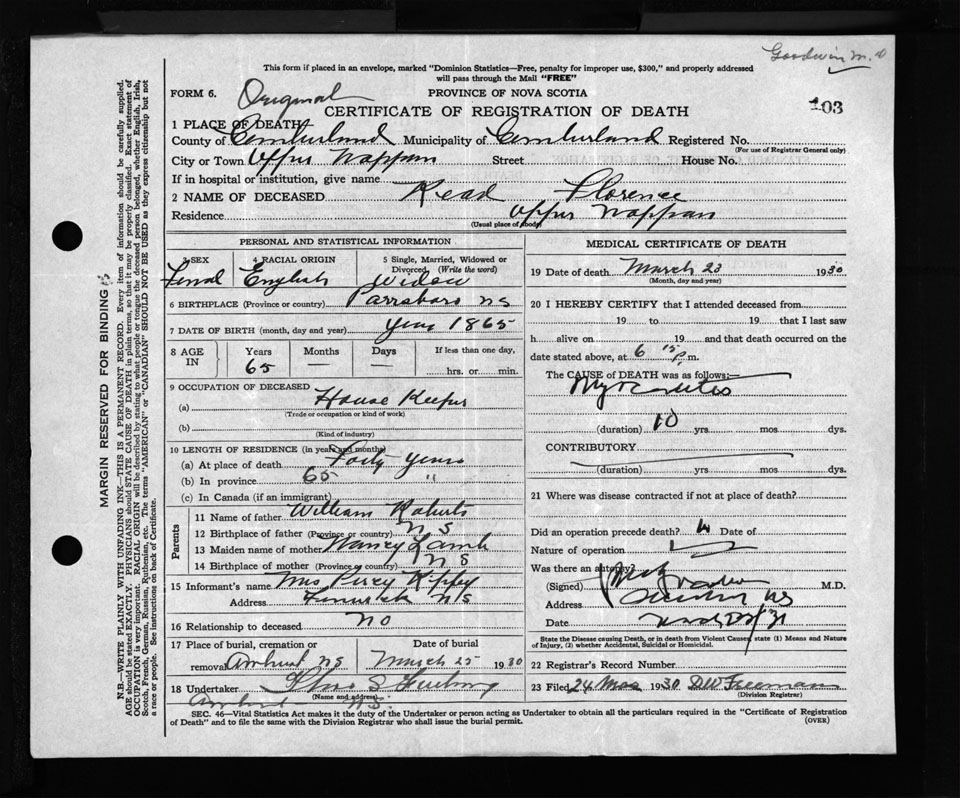 Goodwin M.D
This form if placed in an envelope, marked "Dominion Statistics—Free, penalty for improper use, $300," and properly addressed
will pass through the Mail "FREE"
FORM 6. Original PROVINCE OF NOVA SCOTIA
CERTIFICATE OF REGISTRATION OF DEATH 103
1 PLACE OF DEATH
County of Cumberland Municipality of Cumberland Registered No.
(For use of Registrar General only)
City or Town Upper Nappan Street House No.
If in hospital or institution, give name
2 NAME OF DECEASED Read Florence
Residence Upper Nappan
(Usual place of abode)
PERSONAL AND STATISTICAL INFORMATION
3 SEX 4 RACIAL ORIGIN 5 Single, Married, Widowed or
Divorced (Write the word)
Femal English Widow
6 BIRTHPLACE (Province or country) Parrsboro NS
7 DATE OF BIRTH (month, day and year) year 1865
8 AGE IN Years Months Days If less than one day,
65 — — hrs. or min.
9 OCCUPATION OF DECEASED
(a) House Keeper
(Trade or occupation or kind of work)
(b)
(Kind of industry)
10 LENGTH OF RESIDENCE (in years and months)
(a) At place of death Forty years
(b) In province 65 "
(c) In Canada (if an immigrant)
Parents
11 Name of father William Roberts
12 Birthplace of father (Province or country) N S
13 Maiden name of mother Nancy Lamb
14 Birthplace of mother (Province or country) N S
15 Informant's name Mrs Percy
Address Fenwick N/S
16 Relationship to deceased no
17 Place of burial, cremation or Date of burial
removal Amherst NS March 25 1930
18 Undertaker
(Name and address)
Amherst N.S.
MEDICAL CERTIFICATE OF DEATH
19 Date of death March 23 1930
(Month, day and year)
20 I HEREBY CERTIFY that I attended deceased from
19 to 19 that I last saw
h alive on 19 and that death occurred on the
date stated above, at 6 15 p. m.
The CAUSE of DEATH was as follows:—
Myocarditis
(duration) 10 yrs mos dys.
CONTRIBUTORY
(duration) yrs mos dys.
21 Where was disease contracted if not at place of death?
Did an operation precede death? Date of
Nature of operation
Was there an autopsy?
(Signed) M.D.
Address NS
Date
State the Disease causing Death, or in death from Violent Causes, state (1) Means and Nature
of Injury, (2) whether Accidental, Suicidal or Homicidal.
22 Registrar's Record Number
23 Filed 24 Mar 1930 DW Freeman
(Division Registrar)
SEC. 46—Vital Statistics Act makes it the duty of the Undertaker or person acting as Undertaker to obtain all the particulars required in the "Certificate of Registration
of Death" and to file the same with the Division Registrar who shall issue the burial permit. (OVER)
MARGIN RESERVED FOR BINDING
N.B.—WRITE PLAINLY WITH UNFADING INK—THIS IS A PERMANENT RECORD. Every item of information should be carefully supplied.
AGE should be stated EXACTLY. PHYSICIANS should STATE CAUSE OF DEATH in plain terms, so that it may be properly classified. Exact statement of
OCCUPATION is very important. RACIAL ORIGIN will be described by stating to what people or tongue the deceased person belonged, whether English, Irish,
Scotch, French, German, Russian, Ruthenian, etc. The terms "AMERICAN" or "CANADIAN" SHOULD NOT BE USED as they express citizenship but not
a race or people. See instructions on back of Certificate.